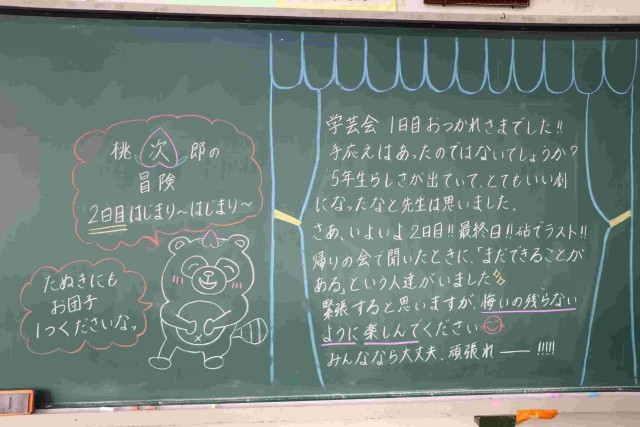 桃次郎の
冒険
2日目はじまり〜はじまり〜
たぬきにも
お団子
1つくださいなっ
学芸会 1日目おつかれさまでした!!
手応えはあったのではないでしょうか?
5年生らしさが出ていて、とてもいい劇
になったなと先生は思いました。
さあ、いよいよ2日目!!最終日!!砧でラスト!!
帰りの会で聞いたときに、「まだできることが
ある」という人達がいました
緊張すると思いますが、悔いの残らない
ように楽しんでください
みんななら大丈夫、頑張れ──!!!!!